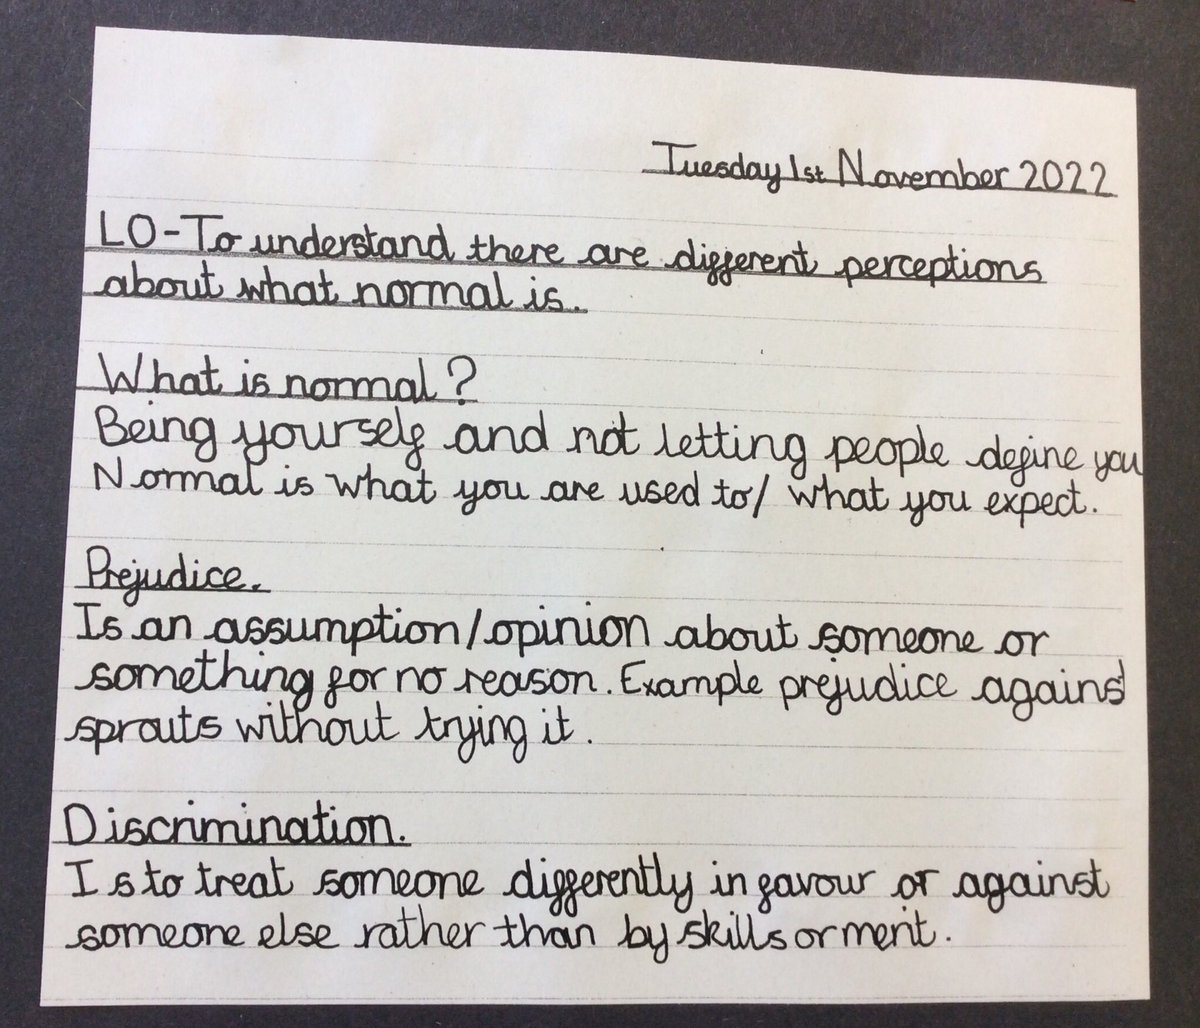 Tuesday 1st November 2022
LO-To understand there are different perceptions
about what normal is.
What is normal?
Being yourself and not letting people define you
Normal is what you are used to/ what you expect.
Prejudice.
Is an assumption/opinion about someone or
something for no reason. Example prejudice agains
sprouts without trying it.
Discrimination.
Is to treat someone differently in favour or against
someone else rather than by skills or merit.